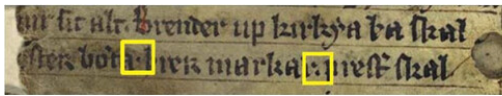 sit alt. Brender up kirkya þa skal
bøta· þrer marka prest skal